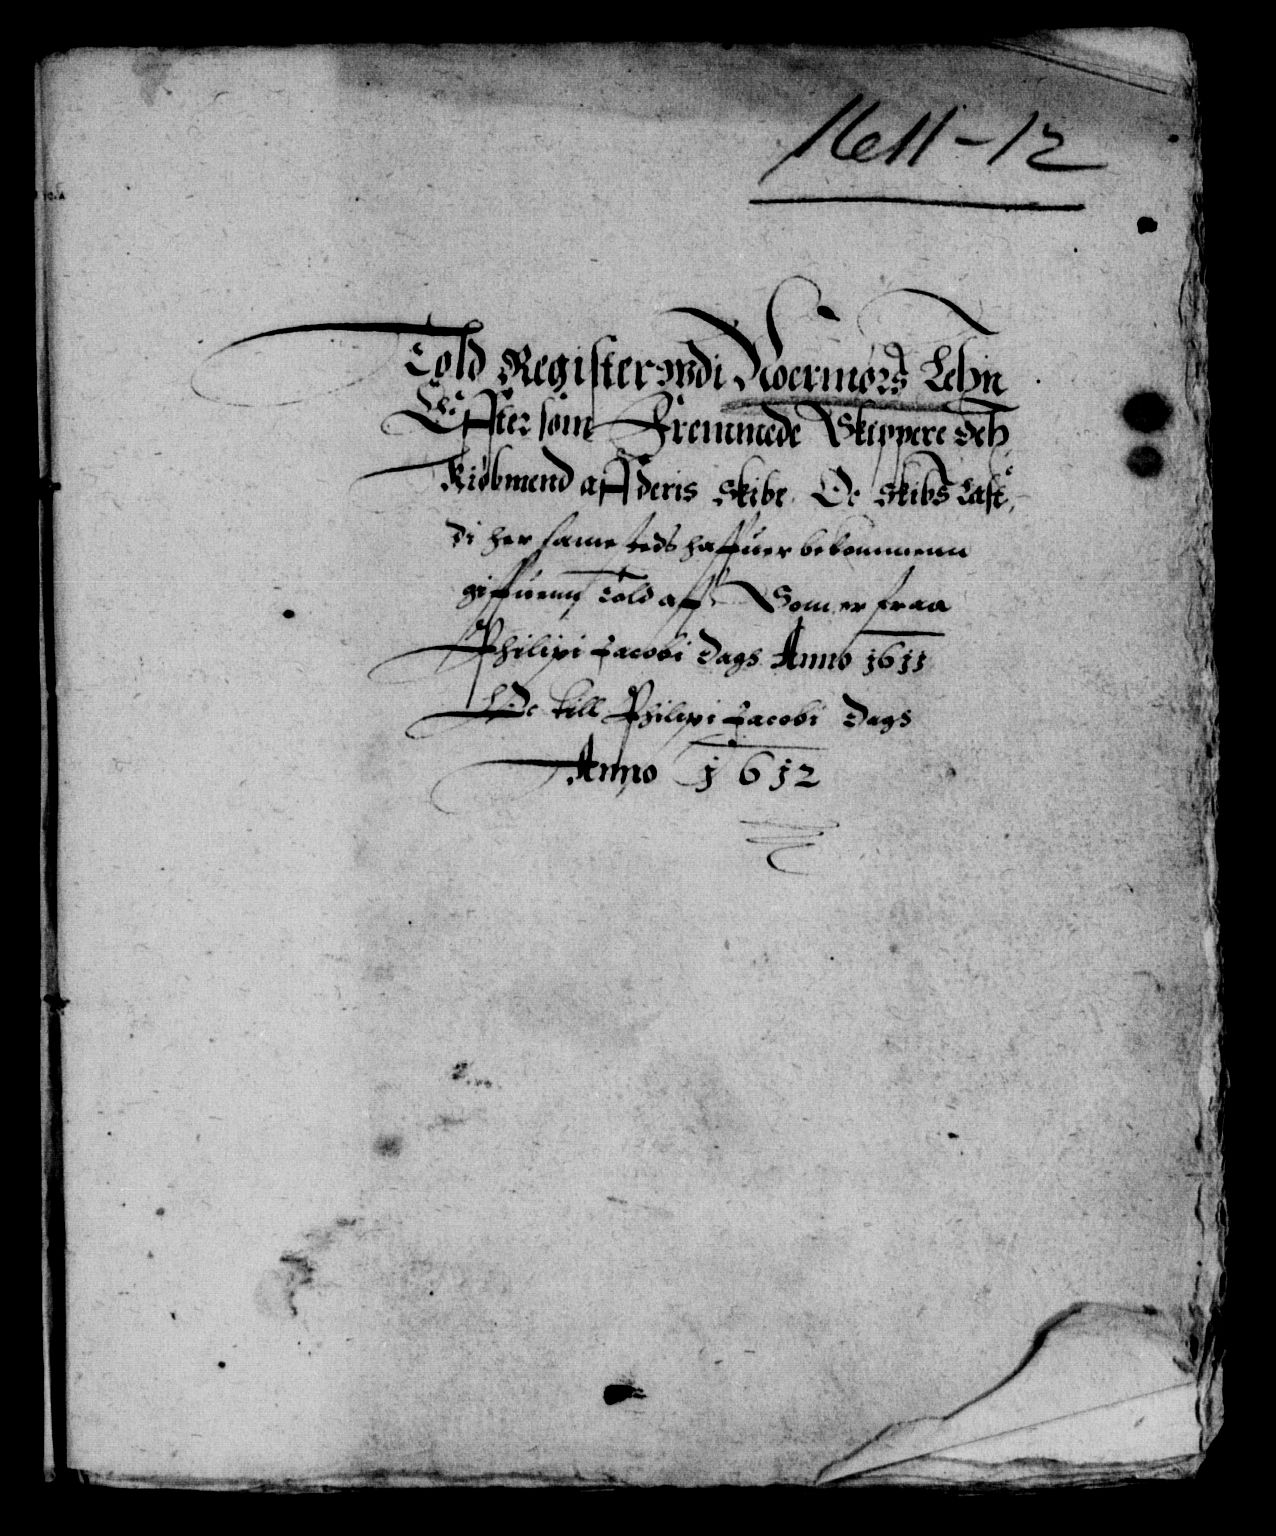 1611-12
Told Register wdi Noermørs Lehn
Effter som Fremmede Skippere och
Kiøbmend aff deris Skibe Oc Skibs Last
di her same steds haffuer bekommenn
giffuenn Told aff Som er fraa
Philipi Jacobi Dags Anno 1611
Oc till Philipi Jacobi Dags
Anno 1612